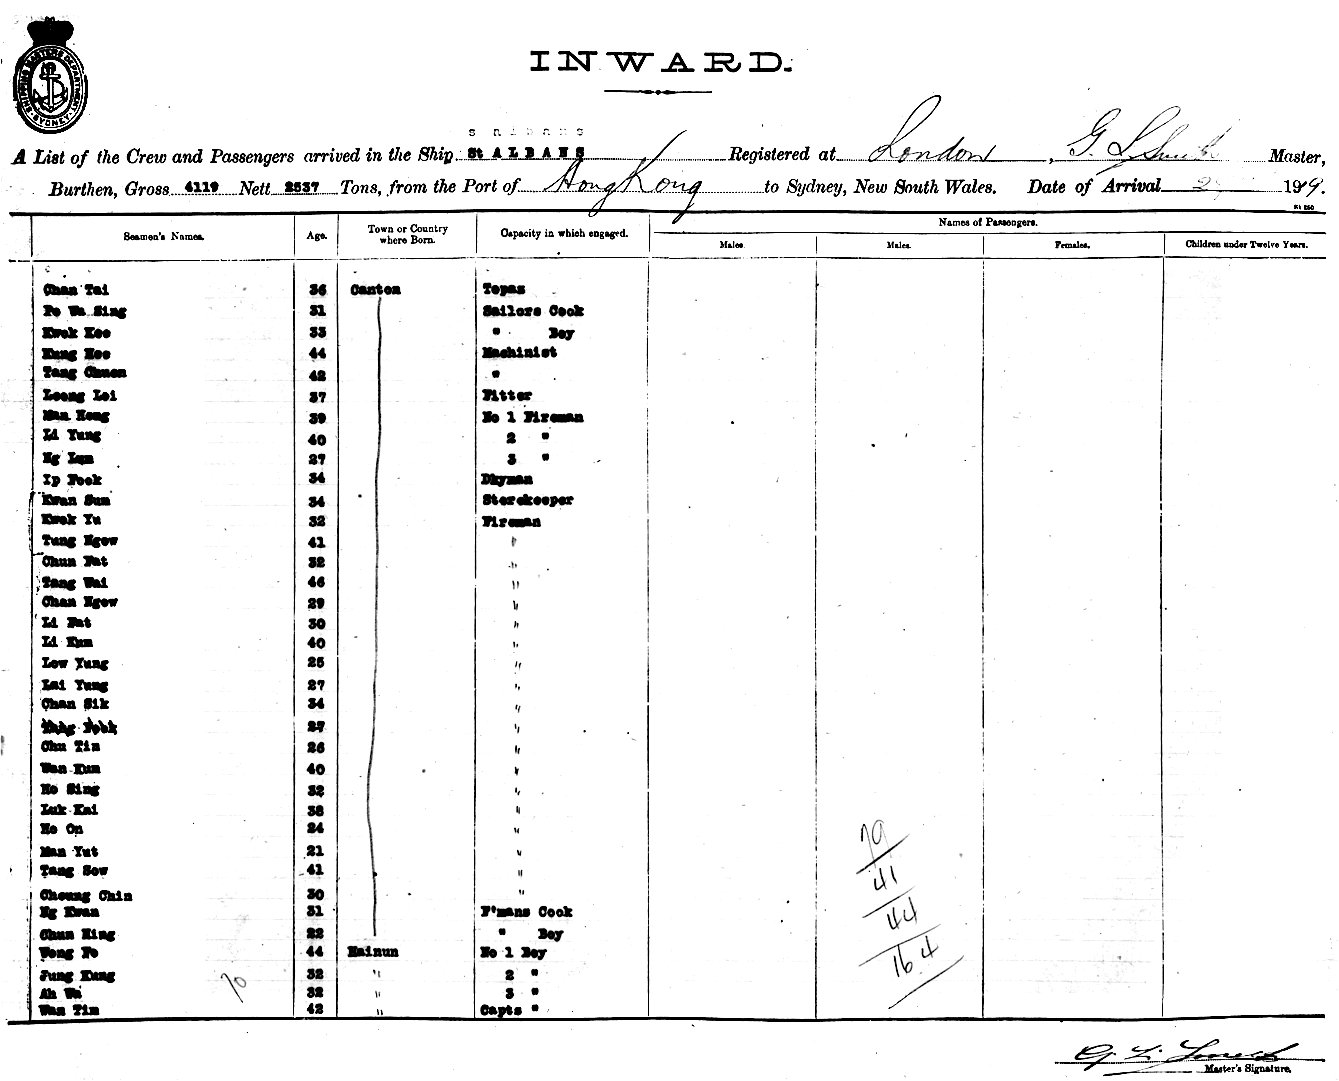 SHIPPING MASTERS DEPARTMENT SYDNEY
INWARD.
S A L B A N S
A List of the Crew and Passengers arrived in the Ship St ALBANS Registered at London, G. L. Smith Master,
Burthen, Gross 4119 Nett 2537 Tons, from the Port of Hong Kong to Sydney, New South Wales. Date of Arrival 1919.
Seamen's Names. Age. Town or Country where Born. Capacity in which engaged. Names of Passengers.
Males. Males. Females. Children under Twelve Years.
Chan Tai 36 Canton Topas
Fo Wa Sing 31 Sailors Cook
Kwok Kee 33 " Boy
Kung Hoe 44 Machinist
Tang Chuen 42 "
Leong Loi 37 Fitter
Man Hong 39 No 1 Fireman
Li Yung 40 2 "
Ng Lun 27 3 "
Yp Fook 34 Dkyman
Kwan Sum 34 Storekeeper
Kwok Yu 32 Fireman
Tung Ngow 41 "
Chun Fat 32 "
Tang Wai 46 "
Chan Ngow 29 "
Li Fat 30 "
Li Kum 40 "
Low Yung 25 "
Lai Yung 27 "
Chan Sik 34 "
27 "
Chu Tin 26 "
Wan Kum 40 "
Ho Sing 32 "
Luk Kai 38 "
Ho On 24 "
Man Yut 21 "
Tang Sow 41 "
Cheung Chin 30 "
Ng Kwan 31 F'mans Cook
Chun Hing 22 " Boy
Wong Fo 44 Hainun No 1 Boy
Jung Kung 32 " 2 "
Ah Wa 32 " 3 "
Wan Tim 42 " Capts "
70
79
41
44
164
Master's Signature.